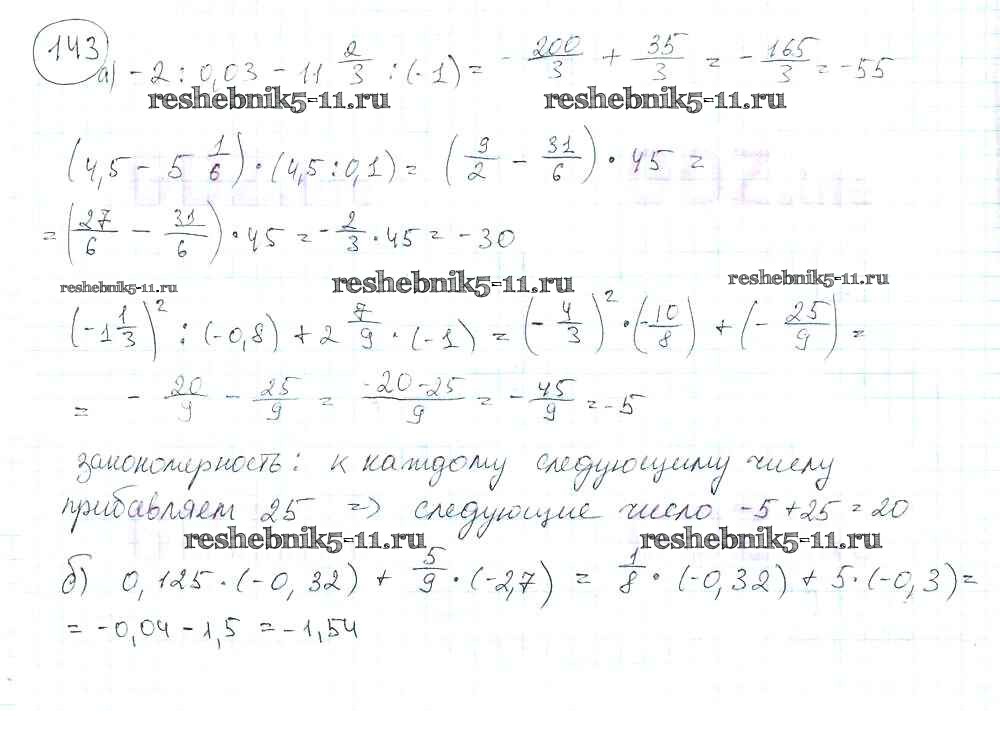 143
а) -2 : 0,03 - 11 2/3 : (-1) = - 200/3 + 35/3 = - 165/3 = -55
reshebnik5-11.ru reshebnik5-11.ru
(4,5 - 5 1/6) · (4,5 : 0,1) = (9/2 - 31/6) · 45 =
= (27/6 - 31/6) · 45 = - 2/3 · 45 = -30
reshebnik5-11.ru reshebnik5-11.ru reshebnik5-11.ru
(-1 1/3)² : (-0,8) + 2 7/9 · (-1) = (- 4/3)² · (- 10/8) + (- 25/9) =
= - 20/9 - 25/9 = -20-25/9 = - 45/9 = -5
закономерность: к каждому следующему числу
прибавляем 25 => следующие число -5+25=20
reshebnik5-11.ru reshebnik5-11.ru
б) 0,125 · (-0,32) + 5/9 · (-2,7) = 1/8 · (-0,32) + 5 · (-0,3) =
= -0,04 - 1,5 = -1,54